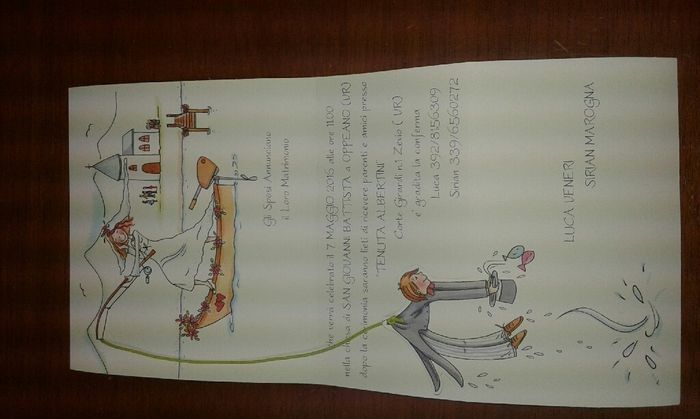 Gli Sposi Annunciano
il Loro Matrimonio
che verrà celebrato il 7 MAGGIO 2016 alle ore 11.00
nella chiesa di SAN GIOVANNI BATTISTA a OPPEANO (VR)
dopo la cerimonia saranno lieti di ricevere parenti e amici presso
TENUTA ALBERTINI
Corte Girardi n.1 Zevio ( VR)
e' gradita la conferma
Luca 392/8156309
Sirian 339/6560272
LUCA VENERI
SIRIAN MAROGNA